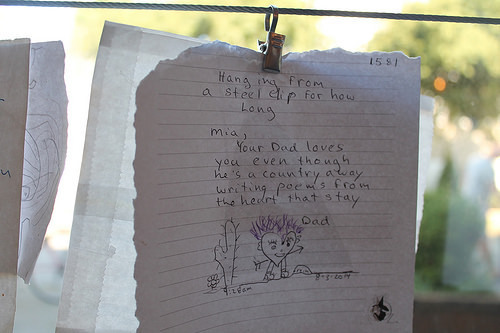 1581
Hanging from
a steel clip for how
Long
Mia,
Your Dad loves
you even though
he's a country away
writing poems from
the heart that stay
Dad